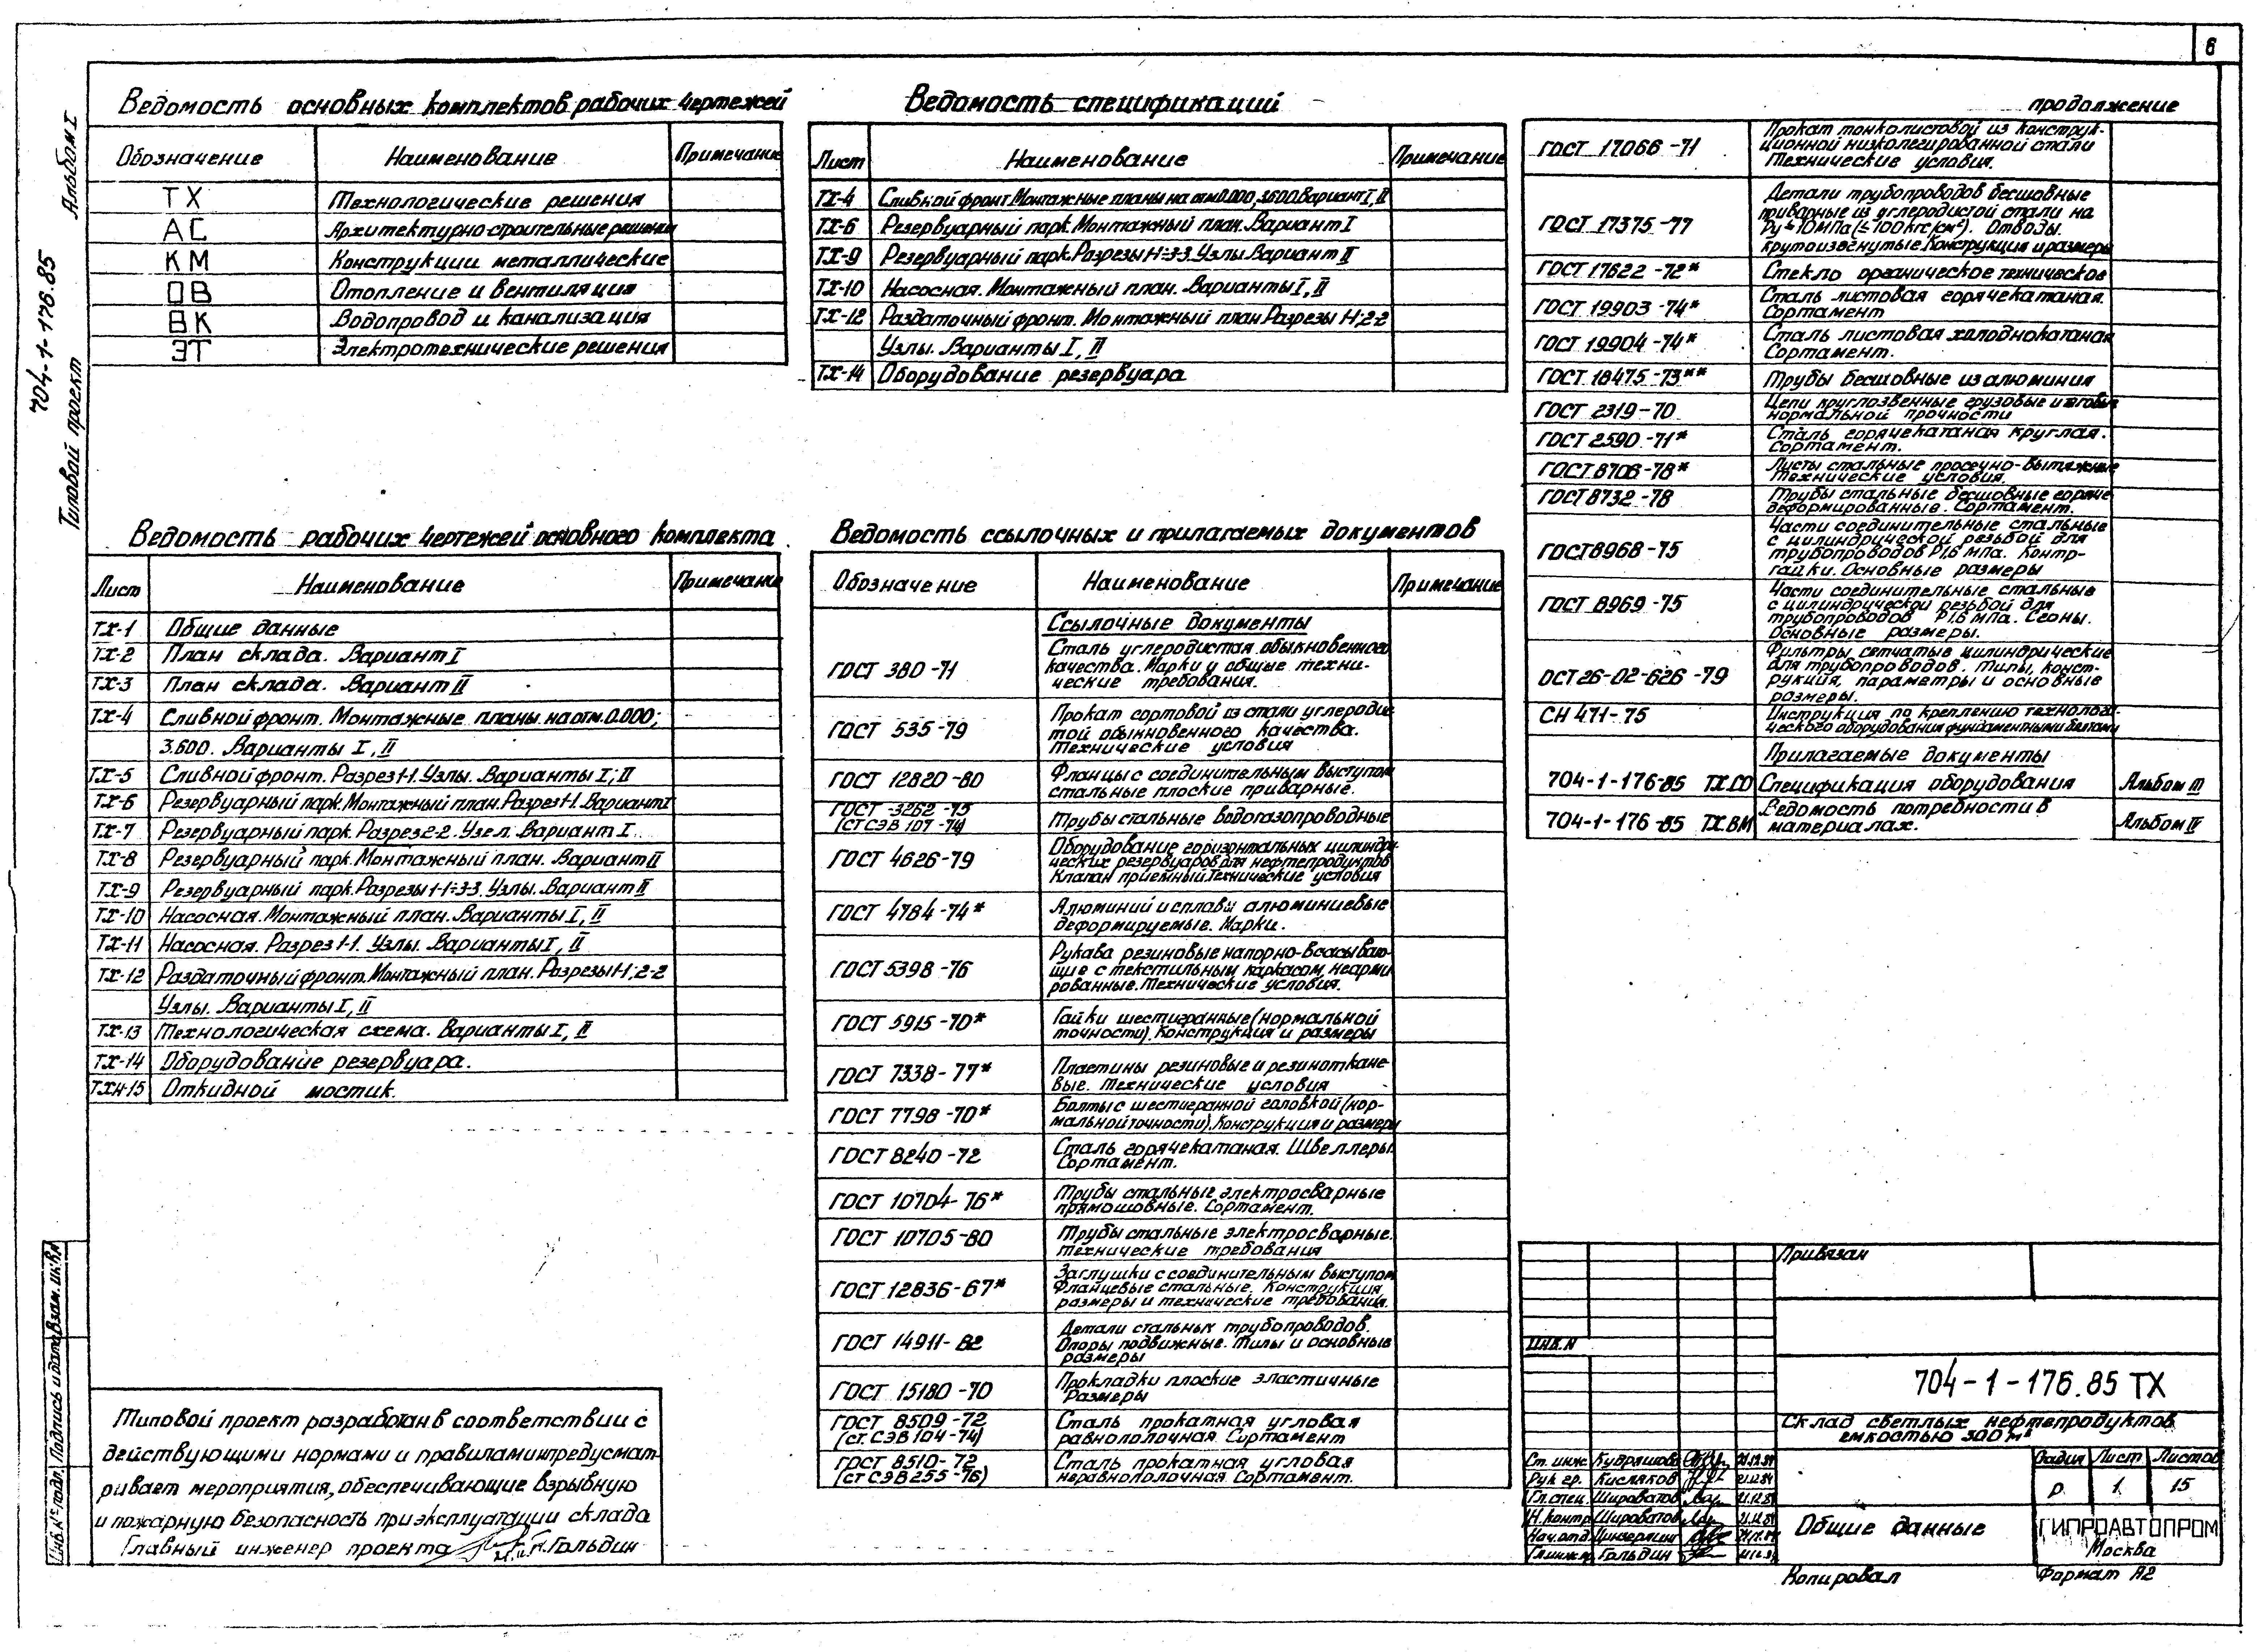 6
Альбом I
704-1-176.85
Типовой проект
Ведомость основных комплектов рабочих чертежей
Обозначение Наименование Примечание
ТХ Технологические решения
АС Архитектурно-строительные решения
КМ Конструкции металлические
ОВ Отопление и вентиляция
ВК Водопровод и канализация
ЭТ Электротехнические решения
Ведомость рабочих чертежей основного комплекта
Лист Наименование Примечание
ТХ-1 Общие данные
ТХ-2 План склада. Вариант I
ТХ-3 План склада. Вариант II
ТХ-4 Сливной фронт. Монтажные планы на отм. 0.000;
3.600. Варианты I, II
ТХ-5 Сливной фронт. Разрез 1-1. Узлы. Варианты I; II
ТХ-6 Резервуарный парк. Монтажный план. Разрез 1-1. Вариант I
ТХ-7 Резервуарный парк. Разрез 2-2. Узел. Вариант I.
ТХ-8 Резервуарный парк. Монтажный план. Вариант II
ТХ-9 Резервуарный парк. Разрезы 1-1÷3-3. Узлы. Вариант II
ТХ-10 Насосная. Монтажный план. Варианты I, II
ТХ-11 Насосная. Разрез 1-1. Узлы. Варианты I, II
ТХ-12 Раздаточный фронт. Монтажный план. Разрезы 1-1, 2-2
Узлы. Варианты I, II
ТХ-13 Технологическая схема. Варианты I, II
ТХ-14 Оборудование резервуара.
ТХН-15 Откидной мостик.
Типовой проект разработан в соответствии с
действующими нормами и правилами и предусмат-
ривает мероприятия, обеспечивающие взрывную
и пожарную безопасность при эксплуатации склада
Главный инженер проекта Гольдин
Взам. инв.№
Подпись и дата
Инв.№ подл.
Ведомость спецификаций
Лист Наименование Примечание
ТХ-4 Сливной фронт. Монтажные планы на отм. 0.000, 3.600. Вариант I, II
ТХ-6 Резервуарный парк. Монтажный план. Вариант I
ТХ-9 Резервуарный парк. Разрезы 1-1÷3-3. Узлы. Вариант II
ТХ-10 Насосная. Монтажный план. Варианты I, II
ТХ-12 Раздаточный фронт. Монтажный план. Разрезы 1-1; 2-2
Узлы. Варианты I, II
ТХ-14 Оборудование резервуара
Ведомость ссылочных и прилагаемых документов
Обозначение Наименование Примечание
Ссылочные документы
ГОСТ 380-71 Сталь углеродистая обыкновенного
качества. Марки и общие техни-
ческие требования.
ГОСТ 535-79 Прокат сортовой из стали углеродис-
той обыкновенного качества.
Технические условия
ГОСТ 12820-80 Фланцы с соединительным выступом
стальные плоские приварные.
ГОСТ 3262-75
(СТ СЭВ 107-74) Трубы стальные водогазопроводные
ГОСТ 4626-79 Оборудование горизонтальных цилиндри-
ческих резервуаров для нефтепродуктов
Клапан приемный. Технические условия
ГОСТ 4784-74* Алюминий и сплавы алюминиевые
деформируемые. Марки.
ГОСТ 5398-76 Рукава резиновые напорно-всасываю-
щие с текстильным каркасом, неарми
рованные. Технические условия.
ГОСТ 5915-70* Гайки шестигранные (нормальной
точности). Конструкция и размеры
ГОСТ 7338-77* Пластины резиновые и резиноткане-
вые. Технические условия
ГОСТ 7798-70* Болты с шестигранной головкой (нор-
мальной точности). Конструкция и размеры
ГОСТ 8240-72 Сталь горячекатаная. Швеллеры.
Сортамент.
ГОСТ 10704-76* Трубы стальные электросварные
прямошовные. Сортамент.
ГОСТ 10705-80 Трубы стальные электросварные.
Технические требования
ГОСТ 12836-67* Заглушки с соединительным выступом
фланцевые стальные. Конструкция,
размеры и технические требования.
ГОСТ 14911-82 Детали стальных трубопроводов.
Опоры подвижные. Типы и основные
размеры
ГОСТ 15180-70 Прокладки плоские эластичные
Размеры
ГОСТ 8509-72
(ст. СЭВ 104-74) Сталь прокатная угловая
равнополочная. Сортамент
ГОСТ 8510-72
(СТ СЭВ 255-76) Сталь прокатная угловая
неравнополочная. Сортамент.
продолжение
ГОСТ 17066-71 Прокат тонколистовой из конструк-
ционной низколегированной стали
Технические условия.
ГОСТ 17375-77 Детали трубопроводов бесшовные
приварные из углеродистой стали на
Ру≤10МПа (≤100кгс/см²). Отводы.
крутоизогнутые. Конструкция и размеры
ГОСТ 17622-72* Стекло органическое техническое
ГОСТ 19903-74* Сталь листовая горячекатаная.
Сортамент
ГОСТ 19904-74* Сталь листовая холоднокатаная
Сортамент.
ГОСТ 18475-73** Трубы бесшовные из алюминия
ГОСТ 2319-70 Цепи круглозвенные грузовые и тяговые
нормальной прочности
ГОСТ 2590-71* Сталь горячекатаная круглая.
Сортамент.
ГОСТ 8706-78* Листы стальные просечно-вытяжные
Технические условия.
ГОСТ 8732-78 Трубы стальные бесшовные горяче-
деформированные. Сортамент.
ГОСТ 8968-75 Части соединительные стальные
с цилиндрической резьбой для
трубопроводов Р1,6 МПа. Контр-
гайки. Основные размеры
ГОСТ 8969-75 Части соединительные стальные
с цилиндрической резьбой для
трубопроводов Р1,6 МПа. Сгоны.
Основные размеры.
ОСТ 26-02-626-79 Фильтры сетчатые цилиндрические
для трубопроводов. Типы, конст-
рукция, параметры и основные
размеры.
СН 471-75 Инструкция по креплению технологи-
ческого оборудования фундаментными болтами
Прилагаемые документы
704-1-176-85 ТХ.СО Спецификация оборудования Альбом III
704-1-176-85 ТХ.ВМ Ведомость потребности в
материалах. Альбом IV
Привязан
ИНВ.N
704-1-176.85 ТХ
Склад светлых нефтепродуктов
емкостью 300 м³
Ст. инж. Кудряшова
Рук. гр. Кисляков 21.12.84
Гл. спец. Широватов 21.12.84
Н. контр. Широватов 21.12.84
Нач. отд.
Гл. инж. пр. Гольдин
Общие данные
Стадия Лист Листов
Р 1 15
ГИПРОАВТОПРОМ
Москва
Копировал
Формат А2